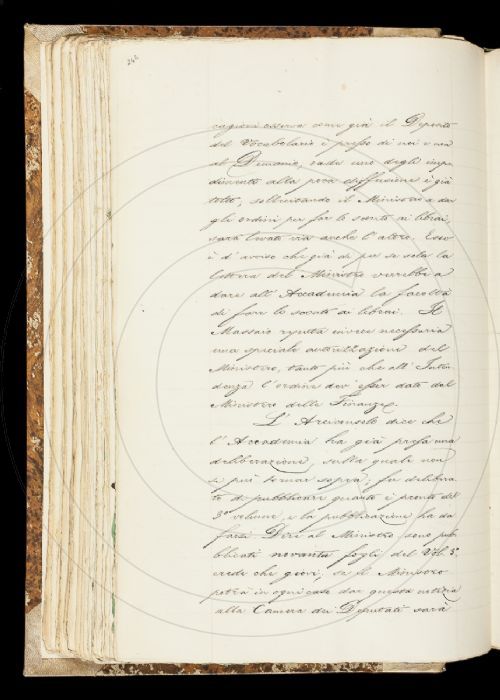 246
cagioni osserva come già il Deposito
del Vocabolario è presso di noi e non
al Demanio, onde uno degli impe
dimenti alla poca diffusione è già
tolto, sollecitando il Ministero a dar
gli ordini per far lo sconto ai librai,
sarà levato via anche l'altro. Esso
è d'avviso che già di per se sola la
lettera del Ministro verrebbe a
dare all'Accademia la facoltà
di fare lo sconto ai librai. Il
Massaio reputa invece necessaria
una speciale autorizzazione del
Ministero, tanto più che all'Inten
denza l'ordine dev'esser dato dal
Ministero delle Finanze.
L'Arciconsolo dice che
l'Accademia ha già preso una
deliberazione, sulla quale non
si può tornar sopra; fu delibera
to di pubblicare quanto è pronto del
3° volume, e la pubblicazione ha da
farsi. Dire al Ministro sono pub
blicati novanta fogli del Vol. 3°
crede che giovi, se il Ministro
potrà in ogni caso dar questa notizia
alla Camera dei Deputati sarà